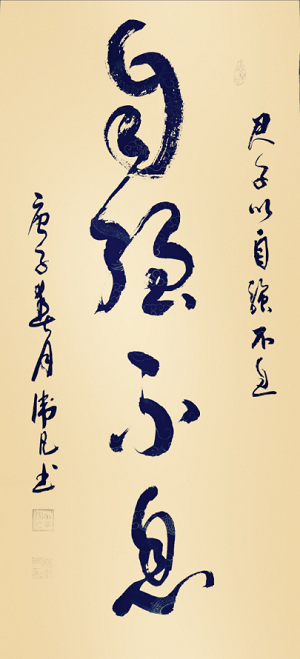 君子以自强不息
自强不息
庚子春月凡书